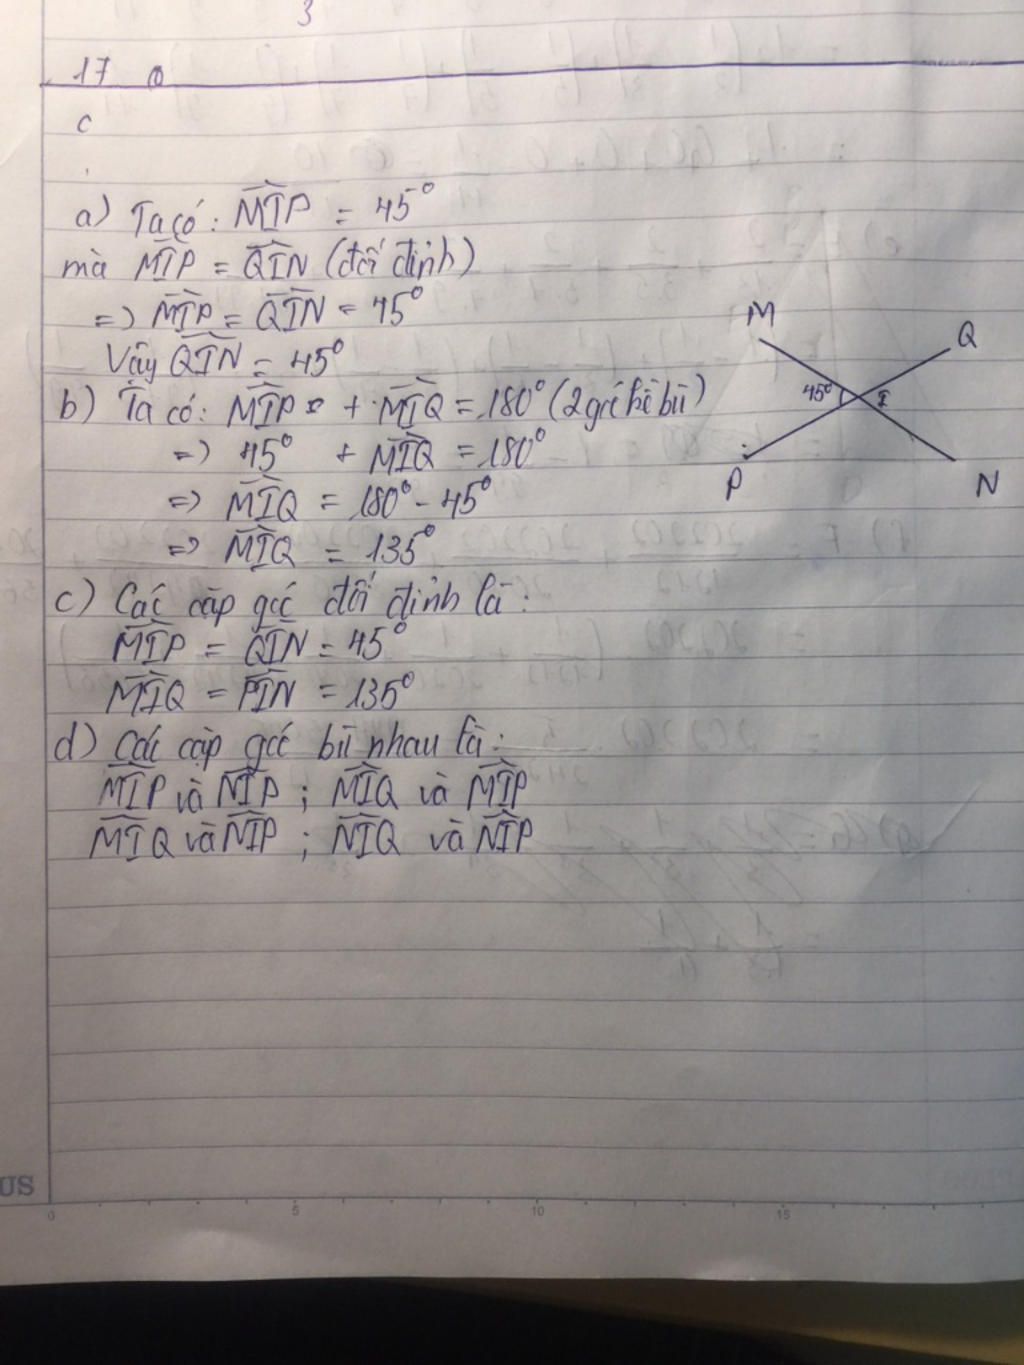 3
17
c
a) Ta có: MIP = 45°
mà MIP = QIN (đối đỉnh)
=> MIP = QIN = 45°
Vậy QIN = 45°
b) Ta có: MIP + MIQ = 180° (2 góc kề bù)
=> 45° + MIQ = 180°
=> MIQ = 180° - 45°
=> MIQ = 135°
c) Các cặp góc đối đỉnh là:
MIP = QIN = 45°
MIQ = PIN = 135°
d) Các cặp góc bù nhau là:
MIP và NIP ; MIQ và MIP
MIQ và NIP ; NIQ và NIP
M
Q
45° I
P
N
US
0 5 10 15